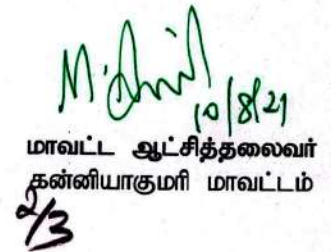 10/8/21
மாவட்ட ஆட்சித்தலைவர்
கன்னியாகுமரி மாவட்டம்
2/3